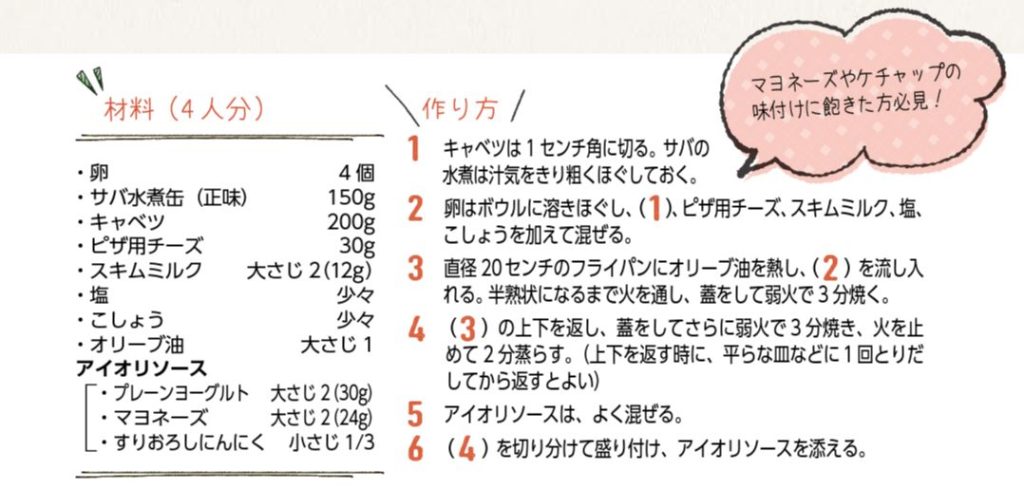 マヨネーズやケチャップの
味付けに飽きた方必見！
材料（4人分）
・卵 4個
・サバ水煮缶（正味） 150g
・キャベツ 200g
・ピザ用チーズ 30g
・スキムミルク 大さじ2(12g)
・塩 少々
・こしょう 少々
・オリーブ油 大さじ1
アイオリソース
・プレーンヨーグルト 大さじ2(30g)
・マヨネーズ 大さじ2(24g)
・すりおろしにんにく 小さじ1/3
作り方
1 キャベツは1センチ角に切る。サバの
水煮は汁気をきり粗くほぐしておく。
2 卵はボウルに溶きほぐし、(1)、ピザ用チーズ、スキムミルク、塩、
こしょうを加えて混ぜる。
3 直径20センチのフライパンにオリーブ油を熱し、(2)を流し入
れる。半熟状になるまで火を通し、蓋をして弱火で3分焼く。
4 (3)の上下を返し、蓋をしてさらに弱火で3分焼き、火を止
めて2分蒸らす。(上下を返す時に、平らな皿などに1回とりだ
してから返すとよい)
5 アイオリソースは、よく混ぜる。
6 (4)を切り分けて盛り付け、アイオリソースを添える。